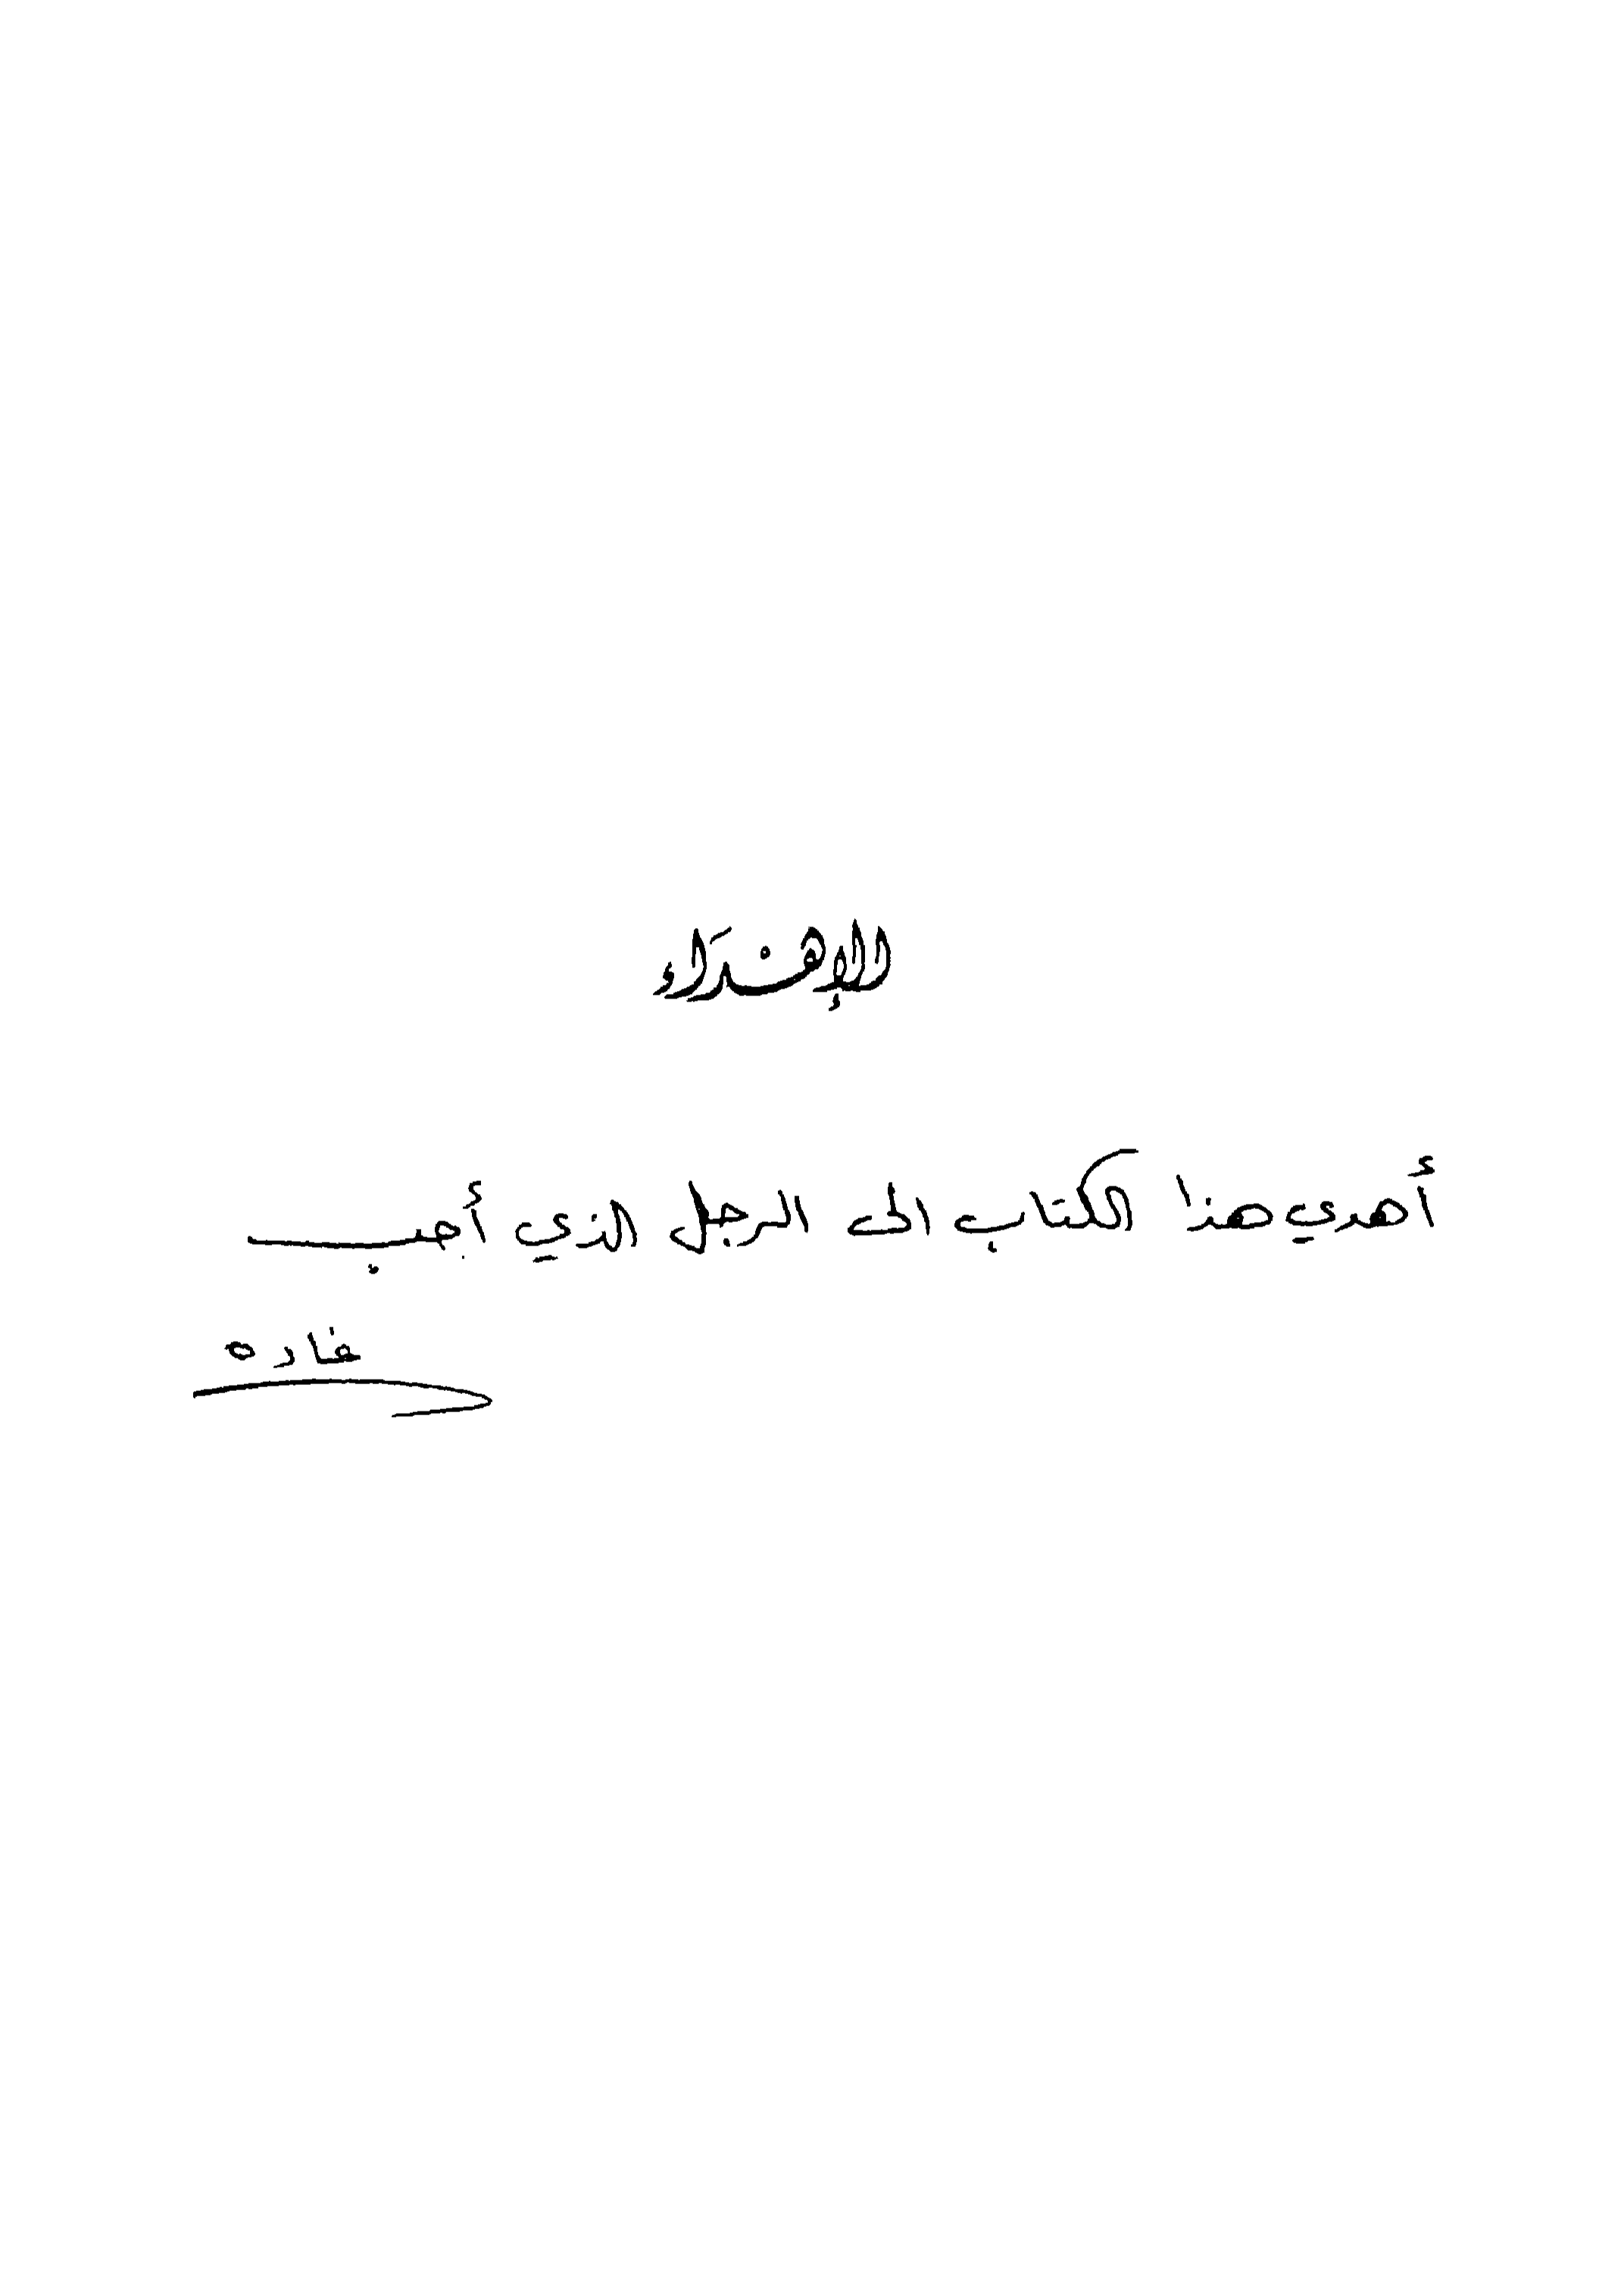 الإهْدَاء
أهدي هذا الكتاب الى الرجل الذي أحب
غاده